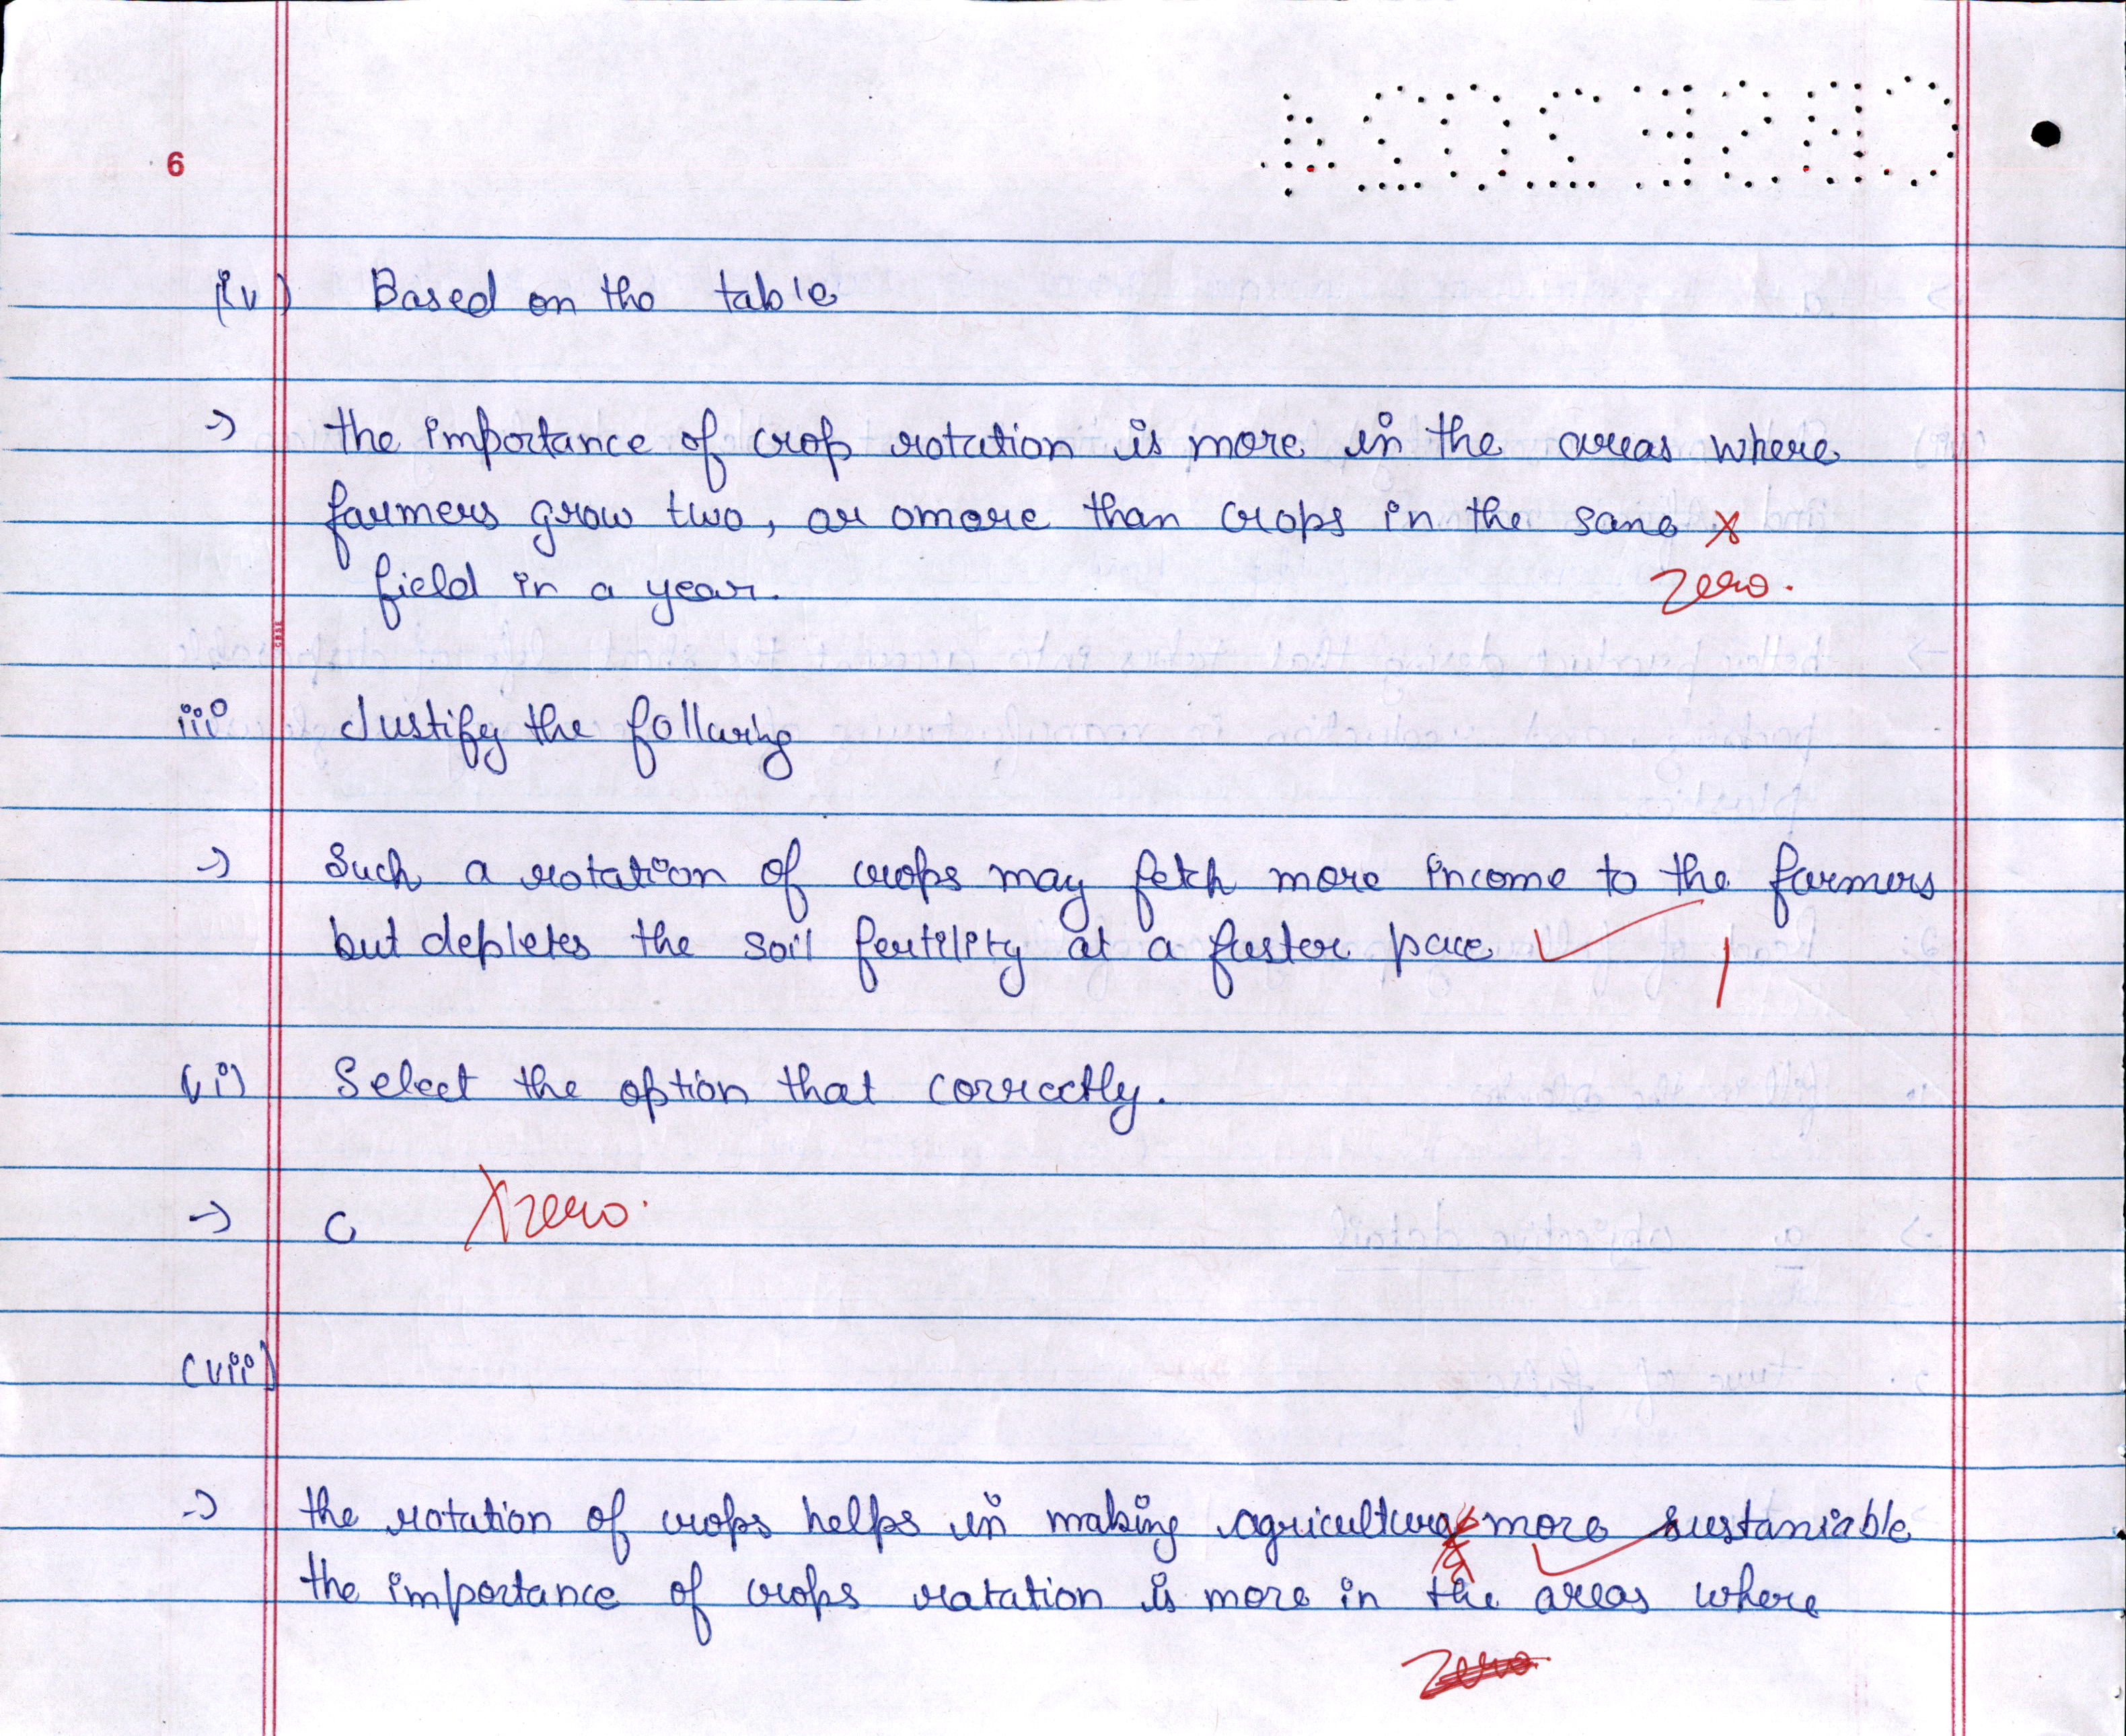 CBSE 2024
6
(iv) Based on the table
→ the importance of crop rotation is more in the areas where
farmers grow two, or omore than crops in the same x
field in a year. zero.
iii Justify the follawing
→ Such a rotation of crops may fetch more income to the farmers
but depletes the soil fertility at a faster pace 1
(vi) Select the option that correctly.
→ C X zero.
(vii)
→ the rotation of crops helps in making agriculture more sustaniable
the importance of crops ratation is more in the areas where
zero